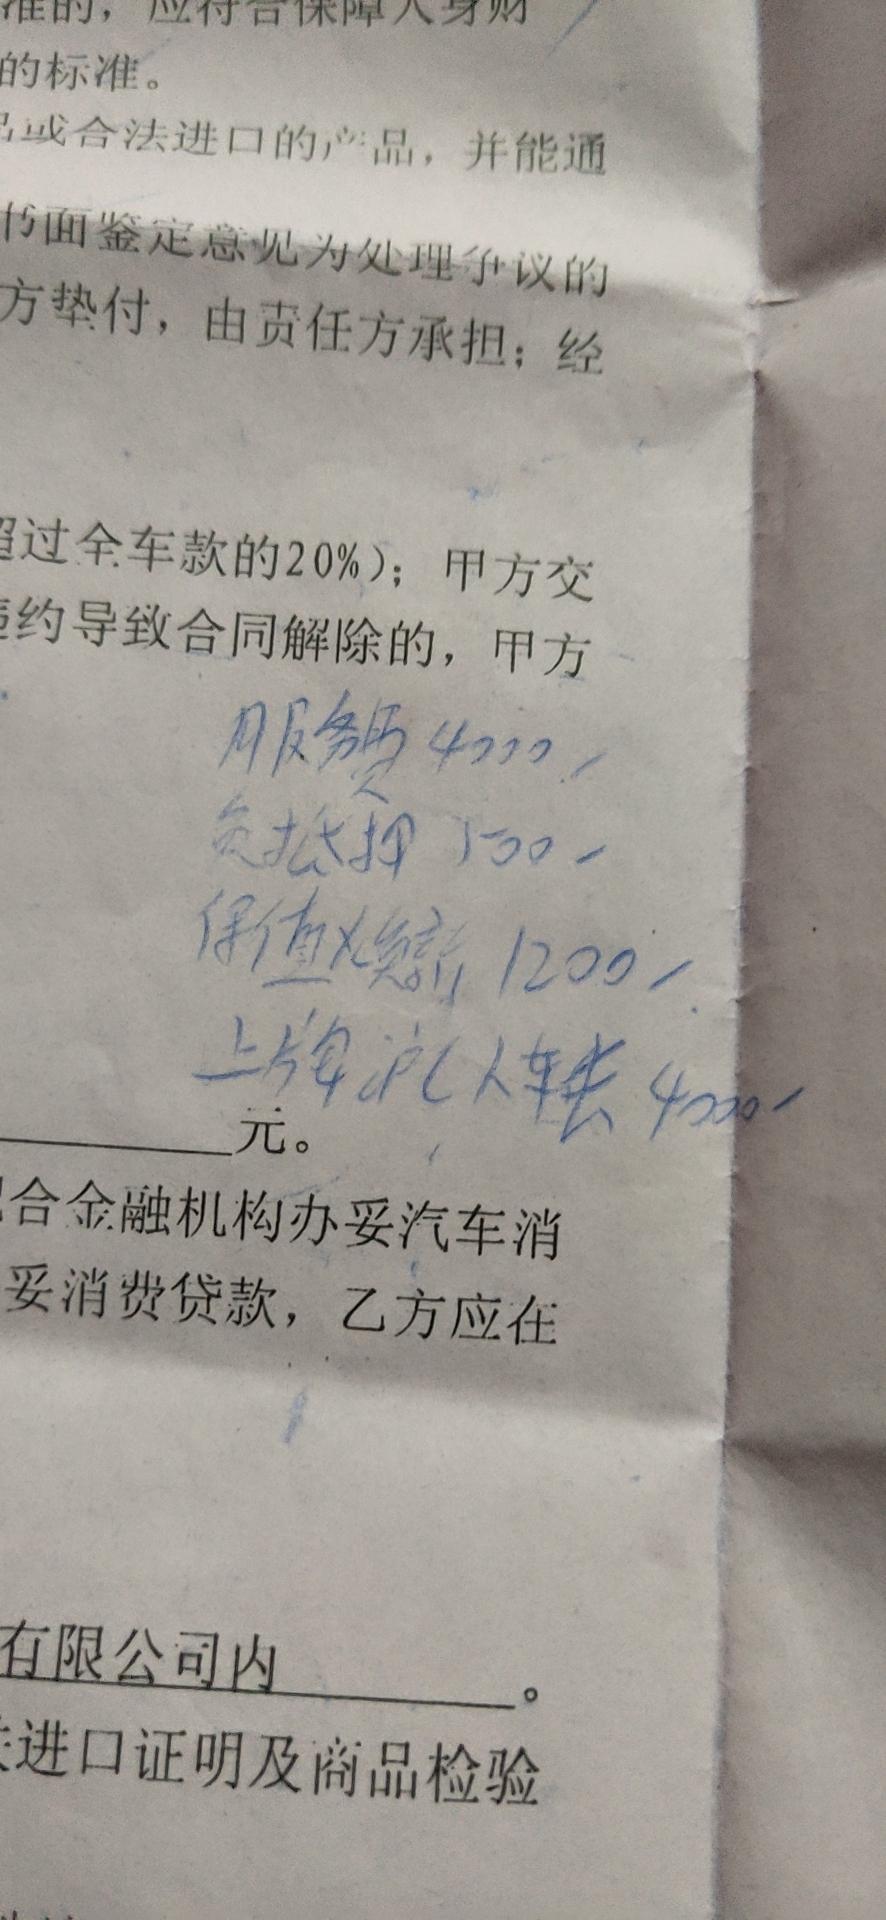 准的，应符合保障人身财
的标准。
品或合法进口的产品，并能通
书面鉴定意见为处理争议的
方垫付，由责任方承担；经
超过全车款的20%）；甲方交
违约导致合同解除的，甲方
服务费 4000
免抵押 500
保值义务 1200
上牌沪C 人车 4000
元。
配合金融机构办妥汽车消
妥消费贷款，乙方应在
有限公司内。
关进口证明及商品检验